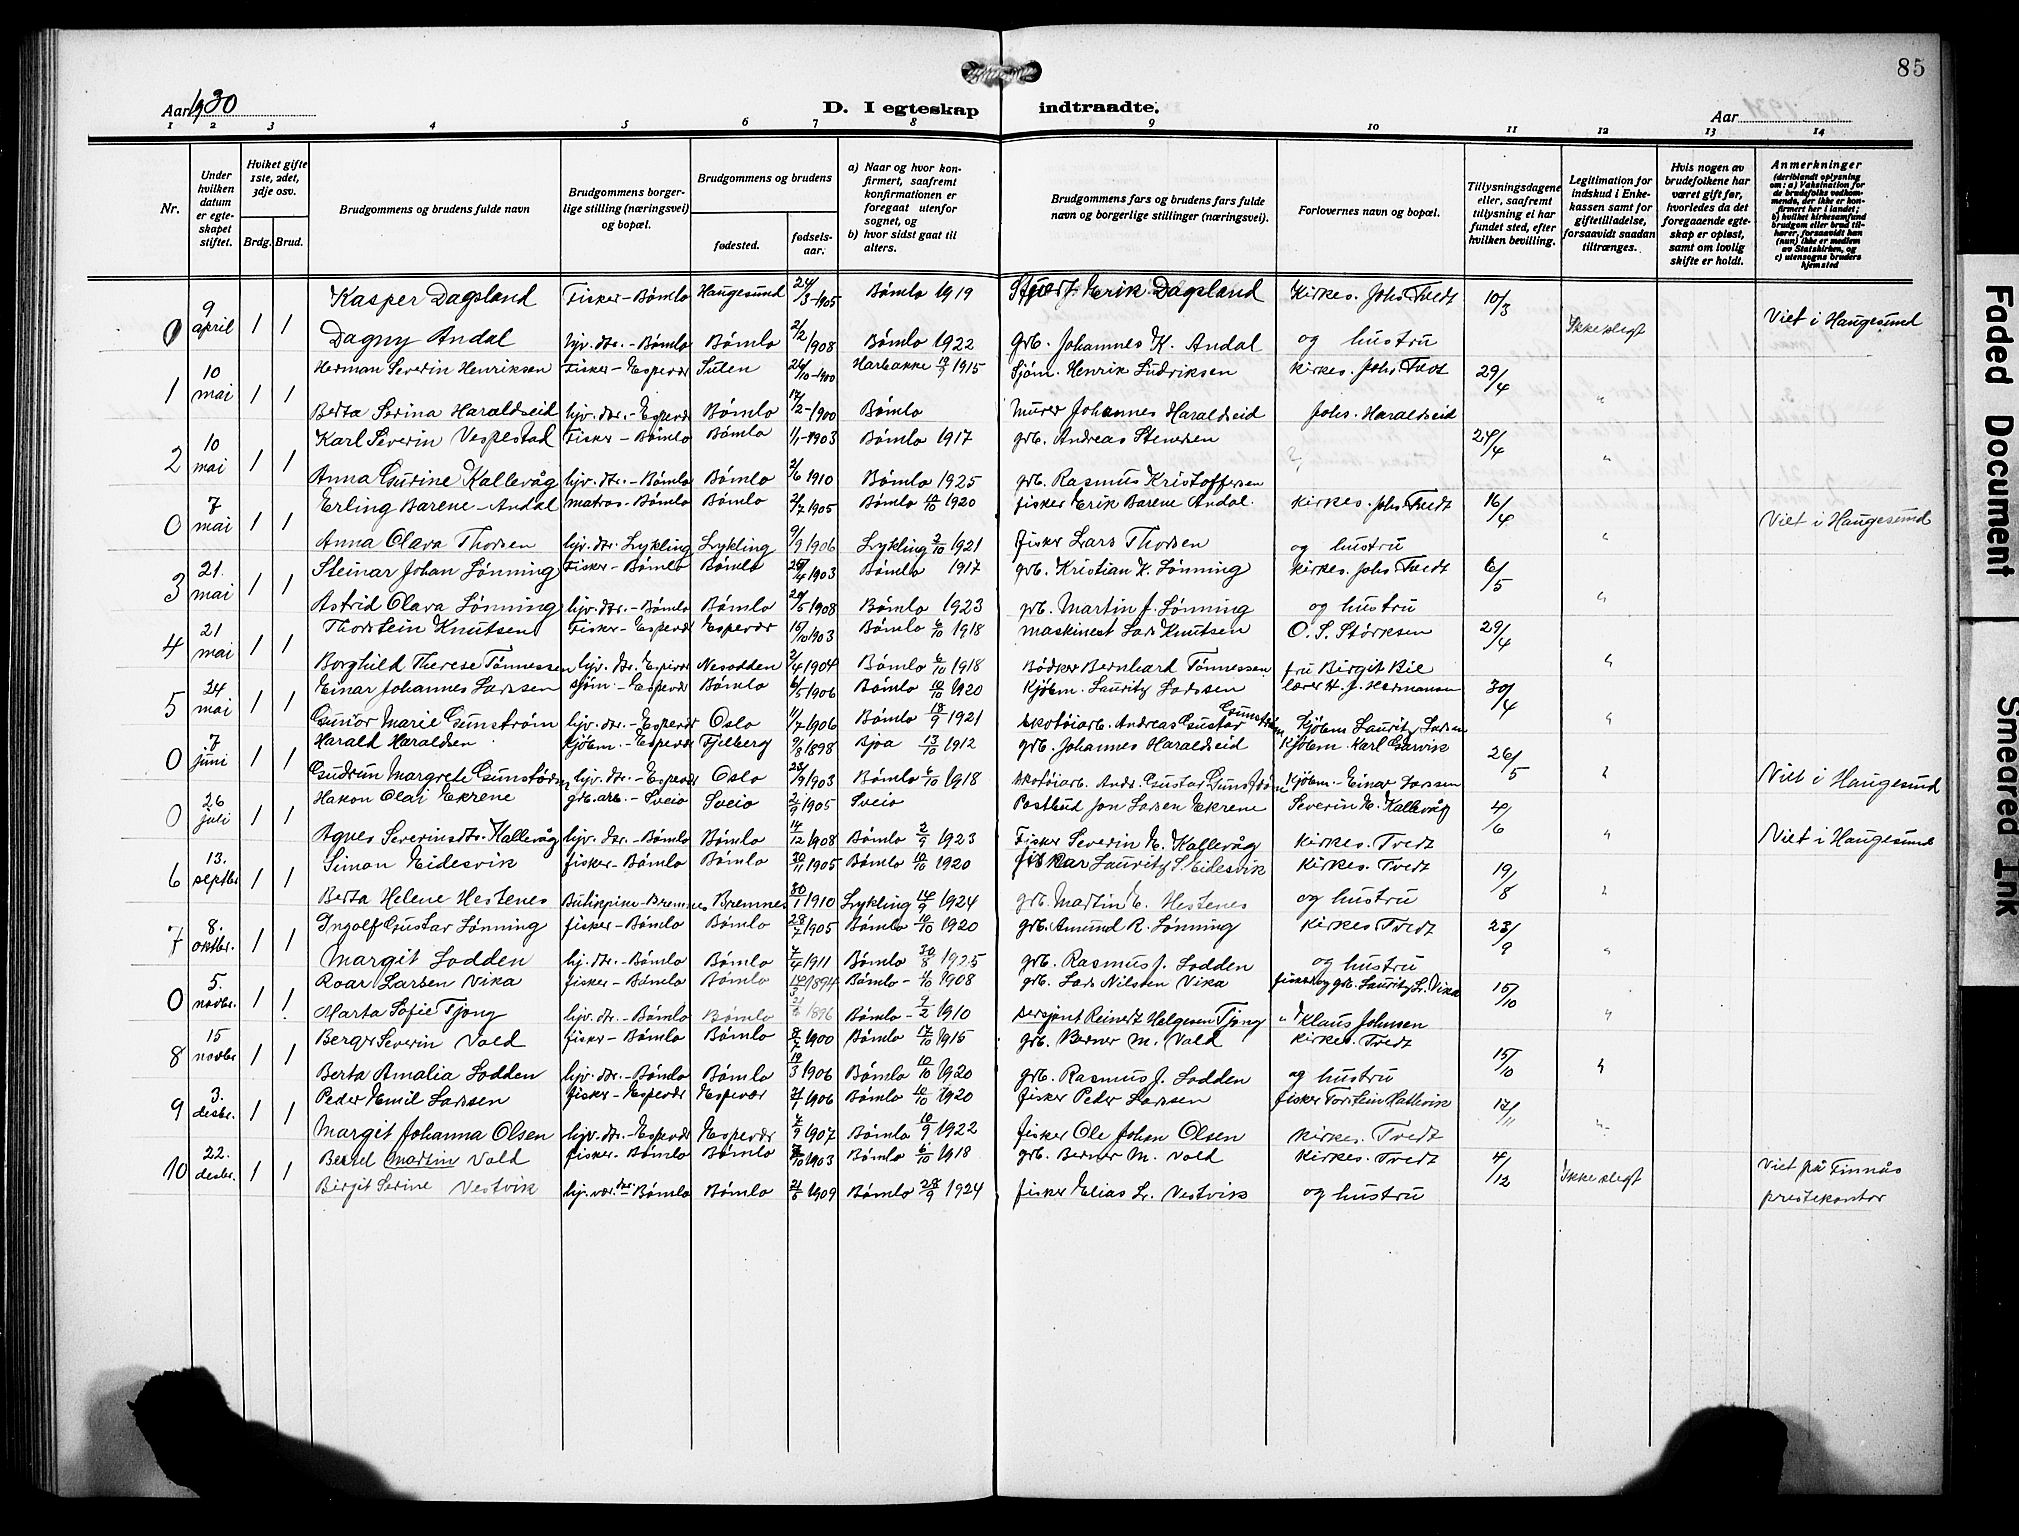 85
Aar 1930
D. I egteskap indtraadte.
Aar
1 2 3 4 5 6 7 8 9 10 11 12 13 14
Nr.
Under hvilken datum er egteskapet stiftet.
Hviket gifte 1ste, 2det, 3dje osv.
Brdg. Brud.
Brudgommens og brudens fulde navn
Brudgommens borgerlige stilling (næringsvei) og bopæl.
Brudgommens og brudens
fødested.
fødselsaar.
a) Naar og hvor konfirmert, saafremt konfirmationen er foregaat utenfor sognet, og
b) hvor sidst gaat til alters.
Brudgommens fars og brudens fars fulde navn og borgerlige stillinger (næringsvei).
Forlovernes navn og bopæl.
Tillysningsdagene eller, saafremt tillysning ei har fundet sted, efter hvilken bevilling.
Legitimation for indskud i Enkekassen samt for giftetilladelse, forsaavidt saadan tiltrænges.
Hvis nogen av brudefolkene har været gift før, hvorledes da det foregaaende egteskap er opløst, samt om lovlig skifte er holdt.
Anmerkninger (deriblandt oplysning om: a) Vaksination for de brudefolks vedkommende, der ikke er konfirmert her i landet; b) hvilket kirkesamfund brudgom eller brud tilhører, forsaavidt han (hun) ikke er medlem av Statskirken, og c) utensogns bruders hjemsted
0 9 april 1 1 Kasper Dagsland Fisker - Bømlo Haugesund 24/3-1905 Bømlo 1919 Erik Dagsland Kirkes. Johs Tvedt 10/3 Ikke slegt Viet i Haugesund
Dagny Andal hjv. dtr. - Bømlo Bømlo 2/2 1908 Bømlo 1922 grb. Johannes K. Andal og hustru
1 10 mai 1 1 Herman Severin Henriksen Fisker - Espevær 26/10-1900 1915 Sjøm. Henrik Ludriksen kirkes. Johs Tvedt 29/4 "
Berta Serina Haraldseid hjv. dtr. - Espevær Bømlo 17/2-1900 Bømlo Murer Johannes Haraldseid Johs. Haraldseid
2 10 mai 1 1 Karl Severin Vespestad Fisker - Bømlo Bømlo 1/1-1903 Bømlo 1917 grb. Andreas Stensen 24/4 "
Anna Gurine Kallevåg hjv. dtr. - Bømlo Bømlo 2/6 1910 Bømlo 1925 grb. Rasmus Kristoffersen
0 7 mai 1 1 Erling Barene - Andal matros - Bømlo Bømlo 2/7 1905 Bømlo 10/10 1920 fisker Erik Barene Andal. kirkes. Johs Tvedt 16/4 " Viet i Haugesund
Anna Olava Thorsen hjv. dtr. Lykling Lykling 9/9 1906 Lykling 2/10 1921 fisker Lars Thorsen og hustru
3 21. mai 1 1 Steinar Johan Lønning Fisker - Bømlo Bømlo 25/4 1903 Bømlo 1917 grb. Kristian K. Lønning kirkes. Johs Tvedt 6/5 "
Astrid Olava Lønning hjv. dtr. - Bømlo Bømlo 24/5 1908 Bømlo 1923 grb. Martin J. Lønning og hustru
4 21 mai 1 1 Thorstein Knutsen Fisker - Espevær Espevær 15/10 1903 Bømlo 6/10 1918 maskinest Lars Knutsen O. S. Størksen 29/4 "
Borghild Therese Tønnessen hjv. dtr. Espevær Nesodden 2/4 1904 Bømlo 6/10 1918 Bødker Bernhard Tønnessen fru Birgit Bie
5 24 mai 1 1 Einar Johannes Larssen sjøm. - Espevær Bømlo 6/5 1906 Bømlo 10/10 1920 Kjøbm. Lauritz Larssen lærer H. J. Hermansen 30/4 "
Gunvor Marie Gunstrøm hjv. dtr. - Espevær Oslo 11/7 1906 Bømlo 18/9 1921 skotøiarb. Andreas Gustav Gunstrøm Kjøbm Lauritz Larsen
0 7 juni 1 1 Harald Haraldsen Kjøbm. - Espevær Fjelberg 2/8 1898 Bjoa 13/10 1912 grb. Johannes Haraldseid Kjøbm. Karl Garvik 26/5 " Viet i Haugesund
Gudrun Margrete Gunstrøm hjv. dtr. - Espevær Oslo 28/9 1903 Bømlo 6/10 1918 skotøiarb. Andr. Gustav Gunstrøm Kjøbm. - Einar Larssen
0 26 juli 1 1 Hakon Olai Ekrene grb. arb. - Sveio Sveio 2/9 1905 Sveio Postbud Jon Larsen Ekrene Severin N. Kallevåg 4/6 " Viet i Haugesund
Agnes Severinsdtr. Kallevåg hjv. dtr. - Bømlo Bømlo 14/12 1908 Bømlo 2/9 1923 Fisker Severin N. Kallevåg kirkes. Tvedt
6 13. septbr 1 1 Simon Eidesvik fisker - Bømlo Bømlo 30/11 1905 Bømlo 10/10 1920 fiskar Lauritz S. Eidesvik Kirkes. Tvedt 19/8 "
Berta Helene Hestenes Butikkpike - Bremnes Bremnes 30/1 1910 Lykling 14/9 1924 grb. Martin E. Hestenes og hustru
7 8. oktbr. 1 1 Ingolf Gustav Lønning fisker - Bømlo Bømlo 28/7 1905 Bømlo 10/10 1920 grb. Amund R. Lønning kirkes Tvedt 23/9 "
Margit Lodden hj. dtr. - Bømlo Bømlo 7/4 1911 Bømlo 30/8 1925 grb. Rasmus J. Lodden og hustru
0 5. novbr. 1 1 Roar Larsen Vika fisker - Bømlo Bømlo 14/3 1894 Bømlo - 4/10 1908 grb. Lars Nilsen Vika fisker og grb. Lauritz L. Vika 15/10 "
Marta Sofie Tjong hjv. dtr. - Bømlo Bømlo 1896 Bømlo - 1910 sersjant Reinert Helgesen Tjong " Klaus Johnsen
8 15 novbr 1 1 Berge Severin Vold fisker - Bømlo Bømlo 8/7 1900 Bømlo 17/10 1915 grb. Berner M. Vold kirkes. Tvedt 15/10 "
Berta Amalia Lodden hjv. dtr. - Bømlo Bømlo 19/3 1906 Bømlo 10/10 1920 grb. Rasmus J. Lodden og hustru
9 3. desbr. 1 1 Peder Emil Larssen fisker - Espevær Espevær 2/1 1906 Bømlo 10/10 1920 fisker Peder Larssen fisker Torstein Hatlevik 12/11 "
Margit Johanna Olsen hjv. dtr. - Espevær Espevær 7/9 1907 Bømlo 10/9 1922 fisker Ole Johan Olsen kirkes. Tvedt
10 22. desbr. 1 1 Bertel Martin Vold fisker - Bømlo Bømlo 7/10 1903 Bømlo 6/10 1918 grb. Berner M. Vold kirkes. Tvedt 4/12 Ikke slegt Viet på Finnås prestekontor
Birgit Serine Vestvik hjv. vær. dtr. Bømlo Bømlo 21/5 1909 Bømlo 28/9 1924 fisker Elias L. Vestvik og hustru
Faded Document
Smeared Ink